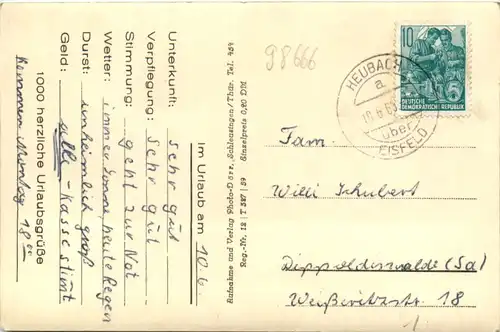 Im Urlaub am 10.6.
Unterkunft: sehr gut
Verpflegung: sehr gut
Stimmung: geht zur Not
Wetter: immer Sonne, heute Regen
Durst: unheimlich groß
Geld: alle - Kasse stimmt
1000 herzliche Urlaubsgrüße
Kommen Montag 18 00
Aufnahme und Verlag Photo-Dörr, Schleusingen/Thür. Tel. 454
Reg.-Nr. 12 | T 287 | 59 Einzelpreis 0,20 DM
98666
10
DEUTSCHE
DEMOKRATISCHE REPUBLIK
HEUBACH
a.
über
EISFELD
Fam.
Willi Schubert
Dippoldiswalde (Sa)
Weißeritzstr. 18